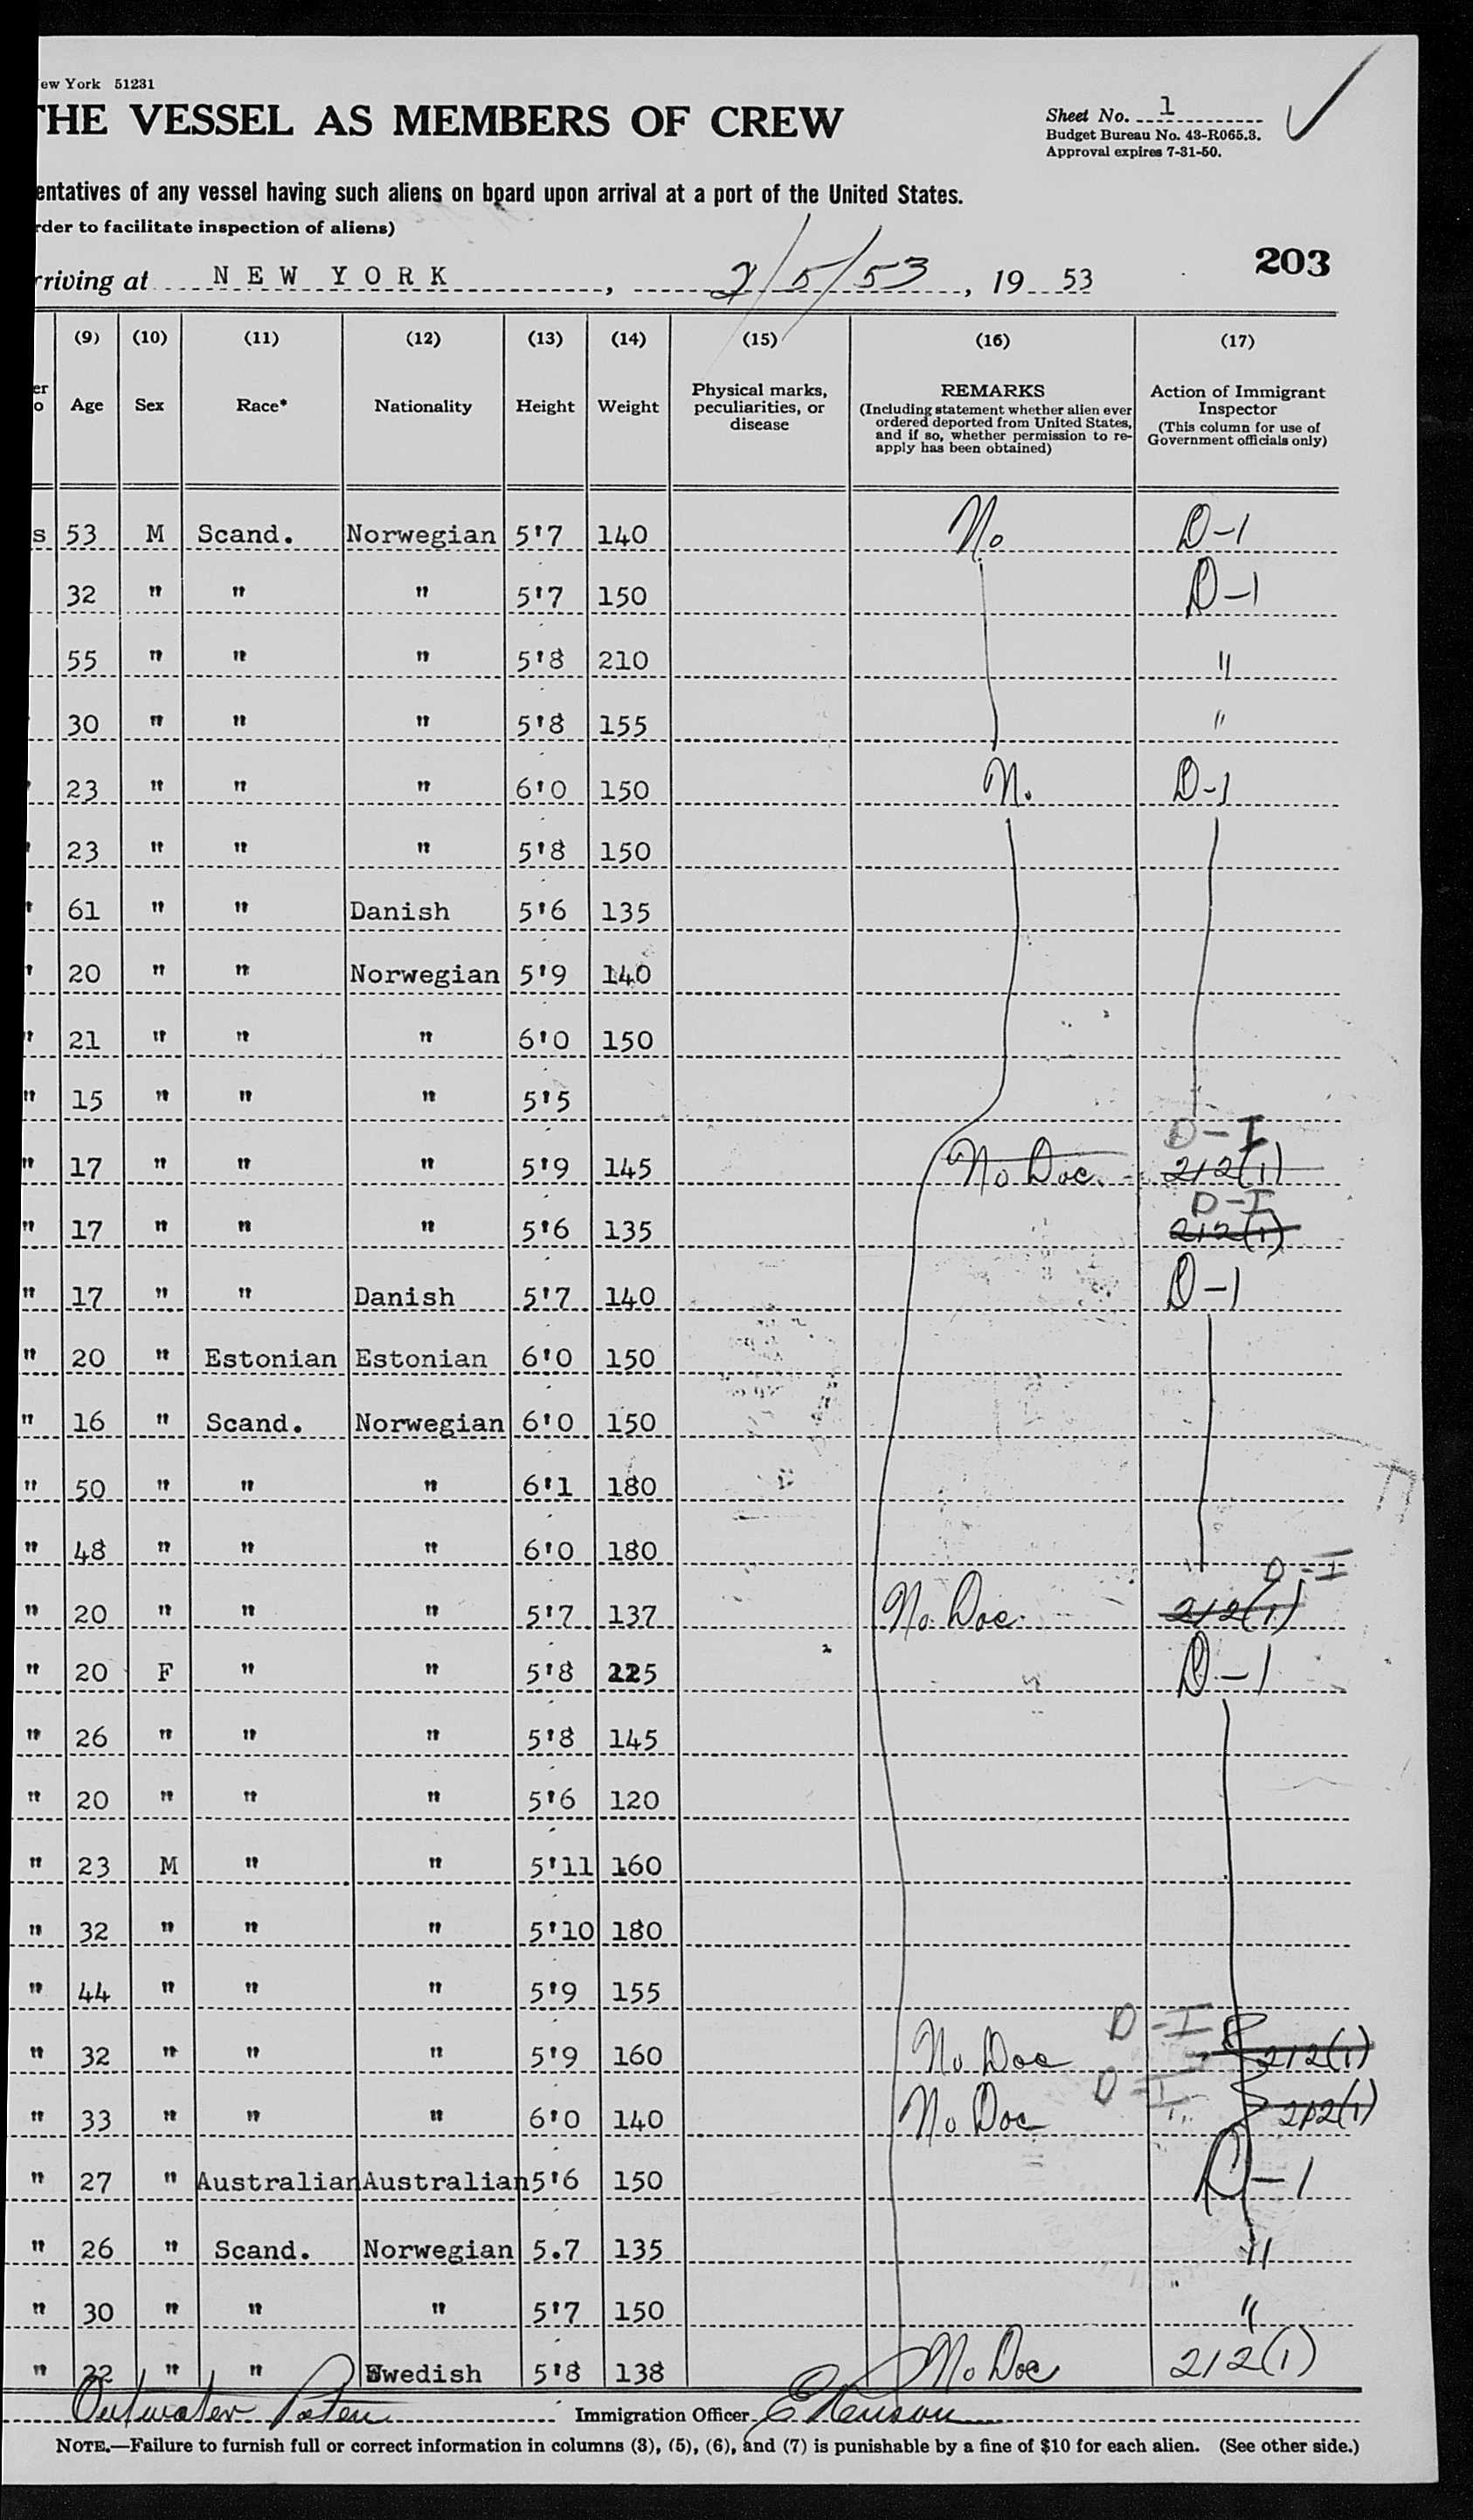 ew York 51231
THE VESSEL AS MEMBERS OF CREW
Sheet No. 1
Budget Bureau No. 43-R065.3.
Approval expires 7-31-50.
entatives of any vessel having such aliens on board upon arrival at a port of the United States.
rder to facilitate inspection of aliens)
203
rriving at NEW YORK, 2/5/53, 19 53
(9) (10) (11) (12) (13) (14) (15) (16) (17)
er
o Age Sex Race* Nationality Height Weight Physical marks, peculiarities, or disease REMARKS (Including statement whether alien ever ordered deported from United States, and if so, whether permission to re-apply has been obtained) Action of Immigrant Inspector (This column for use of Government officials only)
s 53 M Scand. Norwegian 5'7 140 No D-1
32 " " " 5'7 150 D-1
55 " " " 5'8 210 "
30 " " " 5'8 155 "
23 " " " 6'0 150 N. D-1
" 23 " " " 5'8 150
" 61 " " Danish 5'6 135
" 20 " " Norwegian 5'9 140
" 21 " " " 6'0 150
" 15 " " " 5'5
D-I
" 17 " " " 5'9 145 No Doc. 212(1)
D-I
" 17 " " " 5'6 135 212(1)
" 17 " " Danish 5'7 140 D-1
" 20 " Estonian Estonian 6'0 150
" 16 " Scand. Norwegian 6'0 150
" 50 " " " 6'1 180
" 48 " " " 6'0 180
D-I
" 20 " " " 5'7 137 No Doc. 212(1)
" 20 F " " 5'8 225 D-1
" 26 " " " 5'8 145
" 20 " " " 5'6 120
" 23 M " " 5'11 160
" 32 " " " 5'10 180
" 44 " " " 5'9 155
D-I
" 32 " " " 5'9 160 No Doc 212(1)
D-I
" 33 " " " 6'0 140 No Doc 212(1)
" 27 " Australian Australian 5'6 150 D-1
" 26 " Scand. Norwegian 5.7 135 "
" 30 " " " 5'7 150 "
" 22 " " Swedish 5'8 138 No Doc 212(1)
Immigration Officer
NOTE.—Failure to furnish full or correct information in columns (3), (5), (6), and (7) is punishable by a fine of $10 for each alien. (See other side.)